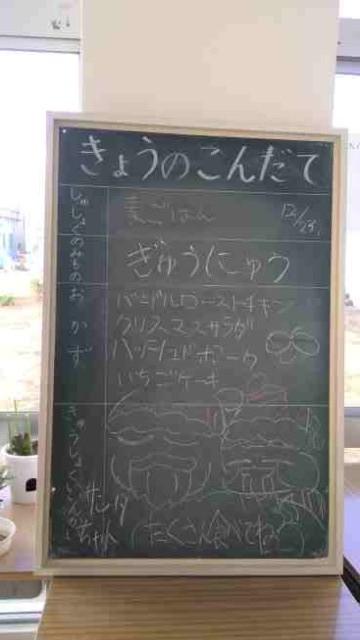 きょうのこんだて
しゅしょく 麦ごはん 12/23
のみもの ぎゅうにゅう
おかず
バードルローストチキン
クリスマスサラダ
ハッシュドポーク
いちごケーキ
きゅうしょく
サンタ
ちゃん
たくさん食べてね